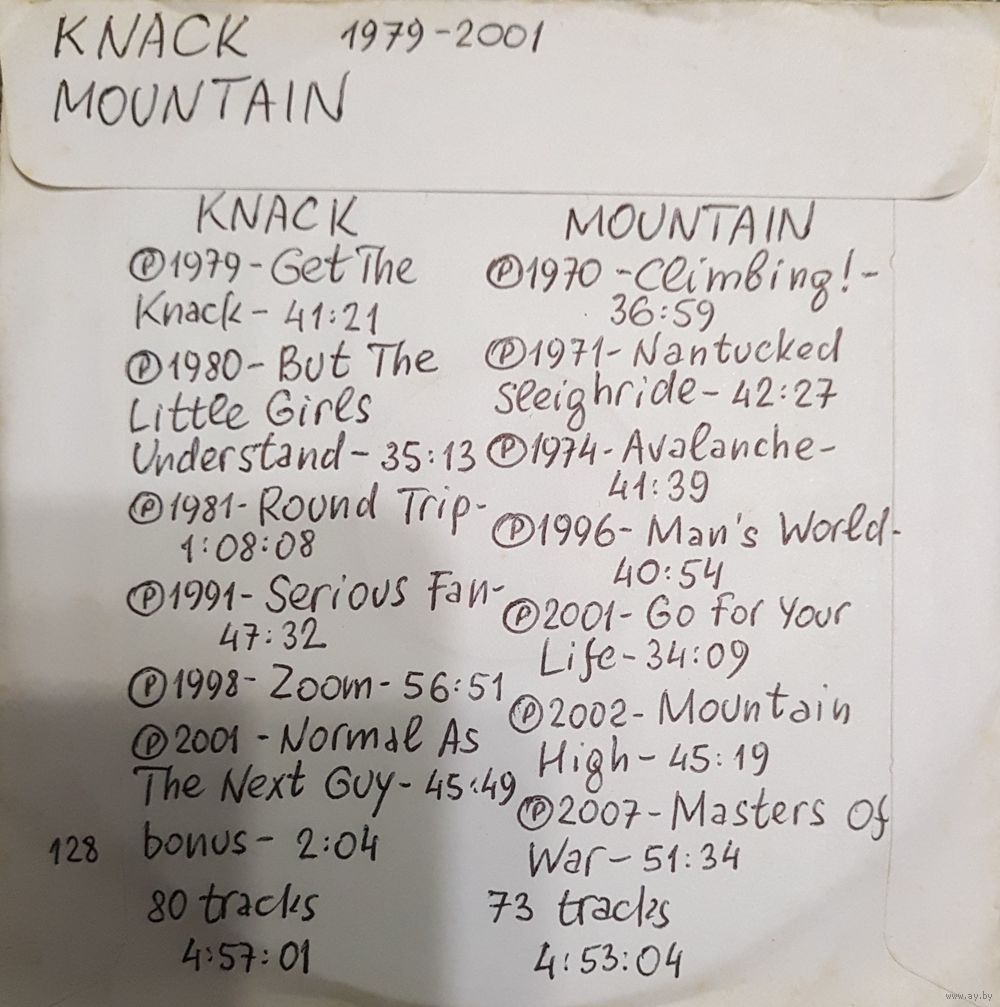 KNACK 1979-2001
MOUNTAIN
KNACK
Ⓟ1979-Get The
Knack- 41:21
Ⓟ1980- But The
Little Girls
Understand- 35:13
Ⓟ1981- Round Trip-
1:08:08
Ⓟ1991- Serious Fan-
47:32
Ⓟ1998- Zoom- 56:51
Ⓟ2001 -Normal As
The Next Guy- 45:49
128 bonus- 2:04
80 tracks
4:57:01
MOUNTAIN
Ⓟ1970 -Climbing!-
36:59
Ⓟ1971- Nantucked
Sleighride- 42:27
Ⓟ1974- Avalanche-
41:39
Ⓟ1996- Man's World-
40:54
Ⓟ2001- Go For Your
Life- 34:09
Ⓟ2002- Mountain
High- 45:19
Ⓟ2007- Masters Of
War- 51:34
73 tracks
4:53:04
www.ay.by